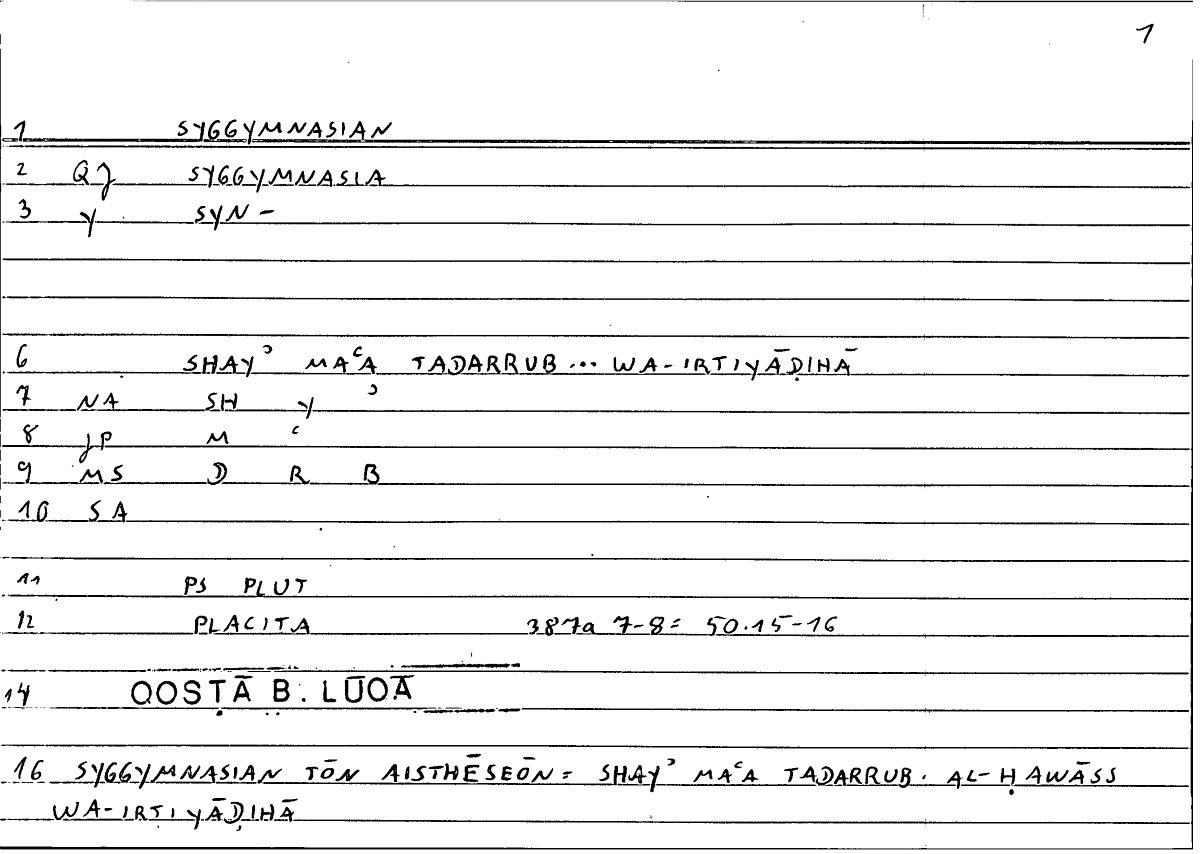 1
1 SYGGYMNASIAN
2 QJ SYGGYMNASIA
3 Y SYN-
6 SHAYʾ MAʿA TADARRUB... WA-IRTIYĀḌIHĀ
7 NA SH Y ʾ
8 JP M ʿ
9 MS D R B
10 SA
11 PS PLUT
12 PLACITA 387a 7-8= 50.15-16
14 QOSṬĀ B. LŪQĀ
16 SYGGYMNASIAN TŌN AISTHĒSEŌN= SHAYʾ MAʿA TADARRUB. AL-ḤAWĀSS
WA-IRTIYĀḌIHĀ